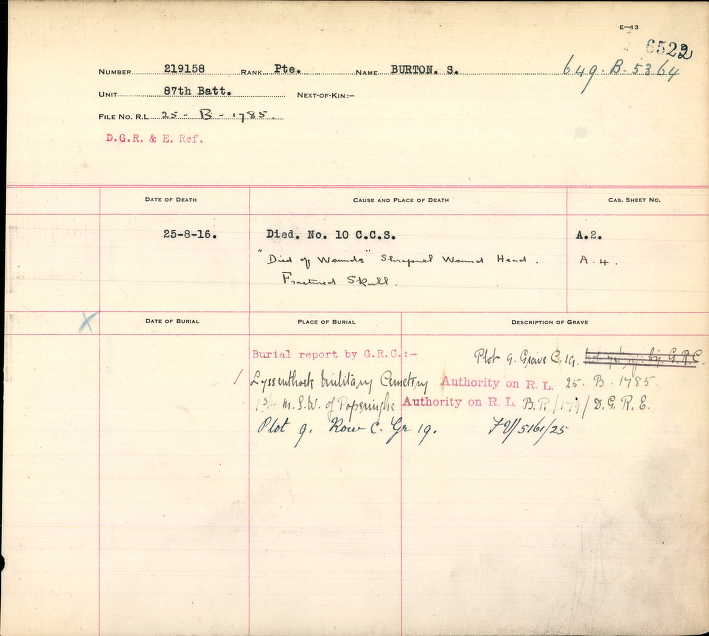 E-43
6522
NUMBER 219158 RANK Pte. NAME BURTON. S. 649-B-5364
UNIT 87th Batt. NEXT-OF-KIN:-
FILE NO. R.L. 25 - B - 1785.
D.G.R. & E. Ref.
DATE OF DEATH CAUSE AND PLACE OF DEATH CAS. SHEET NO.
25-8-16. Died. No. 10 C.C.S. A.2.
"Died of Wounds" Shrapnel Wound Head. A.4.
Fractured Skull.
DATE OF BURIAL PLACE OF BURIAL DESCRIPTION OF GRAVE
Burial report by G.R.C.:- Plot 9. Grave C. 19. by G.R.C.
Lyssenthoek Military Cemetery Authority on R. L. 25-B-1785
M.S.W. of Poperinghe Authority on R. L. B.R. / D.G.R.E.
Plot 9. Row C. Gr 19. /5161/25